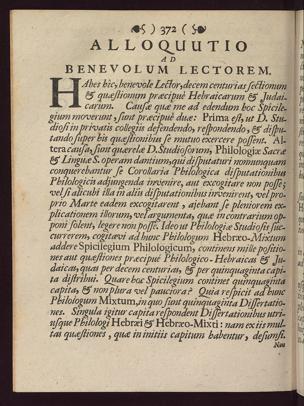 ) 372 (
ALLOQUUTIO
AD
BENEVOLUM LECTOREM.
HAbes hic, benevole Lector, decem centurias sectionum
& quæstionum præcipuè Hebraicarum & Judai-
carum. Causæ quæ me ad edendum hoc Spicile-
gium moverunt, sunt præcipuè duæ: Prima est, ut D. Stu-
diosi in privatis collegiis defendendo, respondendo, & dispu-
tando super his quæstionibus se mutuo exercere possent. Al-
tera causa, sunt querelæ D. Studiosorum, Philologiæ Sacræ
& Linguæ S. operam dantium, qui disputaturi nonnunquam
conquerebantur se Corollaria Philologica disputationibus
Philologicis adjungenda invenire, aut excogitare non posse;
vel si alicubi illa in aliis disputationibus invenirent, vel pro-
prio Marte eadem excogitarent, ajebant se pleniorem ex-
plicationem illorum, vel argumenta, quæ in contrarium op-
poni solent, legere non posse. Ideo ut Philologiæ Studiosis suc-
currerem, cogitavi ad hunc Philologum Hebræo-Mixtum
addere Spicilegium Philologicum, continens mille positio-
nes aut quæstiones præcipuè Philologico-Hebraicas & Ju-
daicas, quas per decem centurias, & per quinquaginta capi-
ta distribui. Quare hoc Spicilegium continet quinquaginta
capita, & non plura vel pauciora? Quia respicit ad hunc
Philologum Mixtum, in quo sunt quinquaginta Dissertatio-
nes. Singula igitur capita respondent Dissertationibus utri-
usque Philologi Hebræi & Hebræo-Mixti: nam ex iis mul-
tas quæstiones, quæ in initiis capitum habentur, desumsi.
Nam